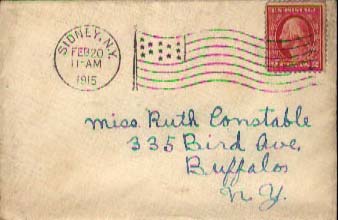 SIDNEY, N.Y.
FEB 20
11-AM
1915
U.S. POSTAGE
Miss Ruth Constable
335 Bird Ave.
Buffalo
N.Y.